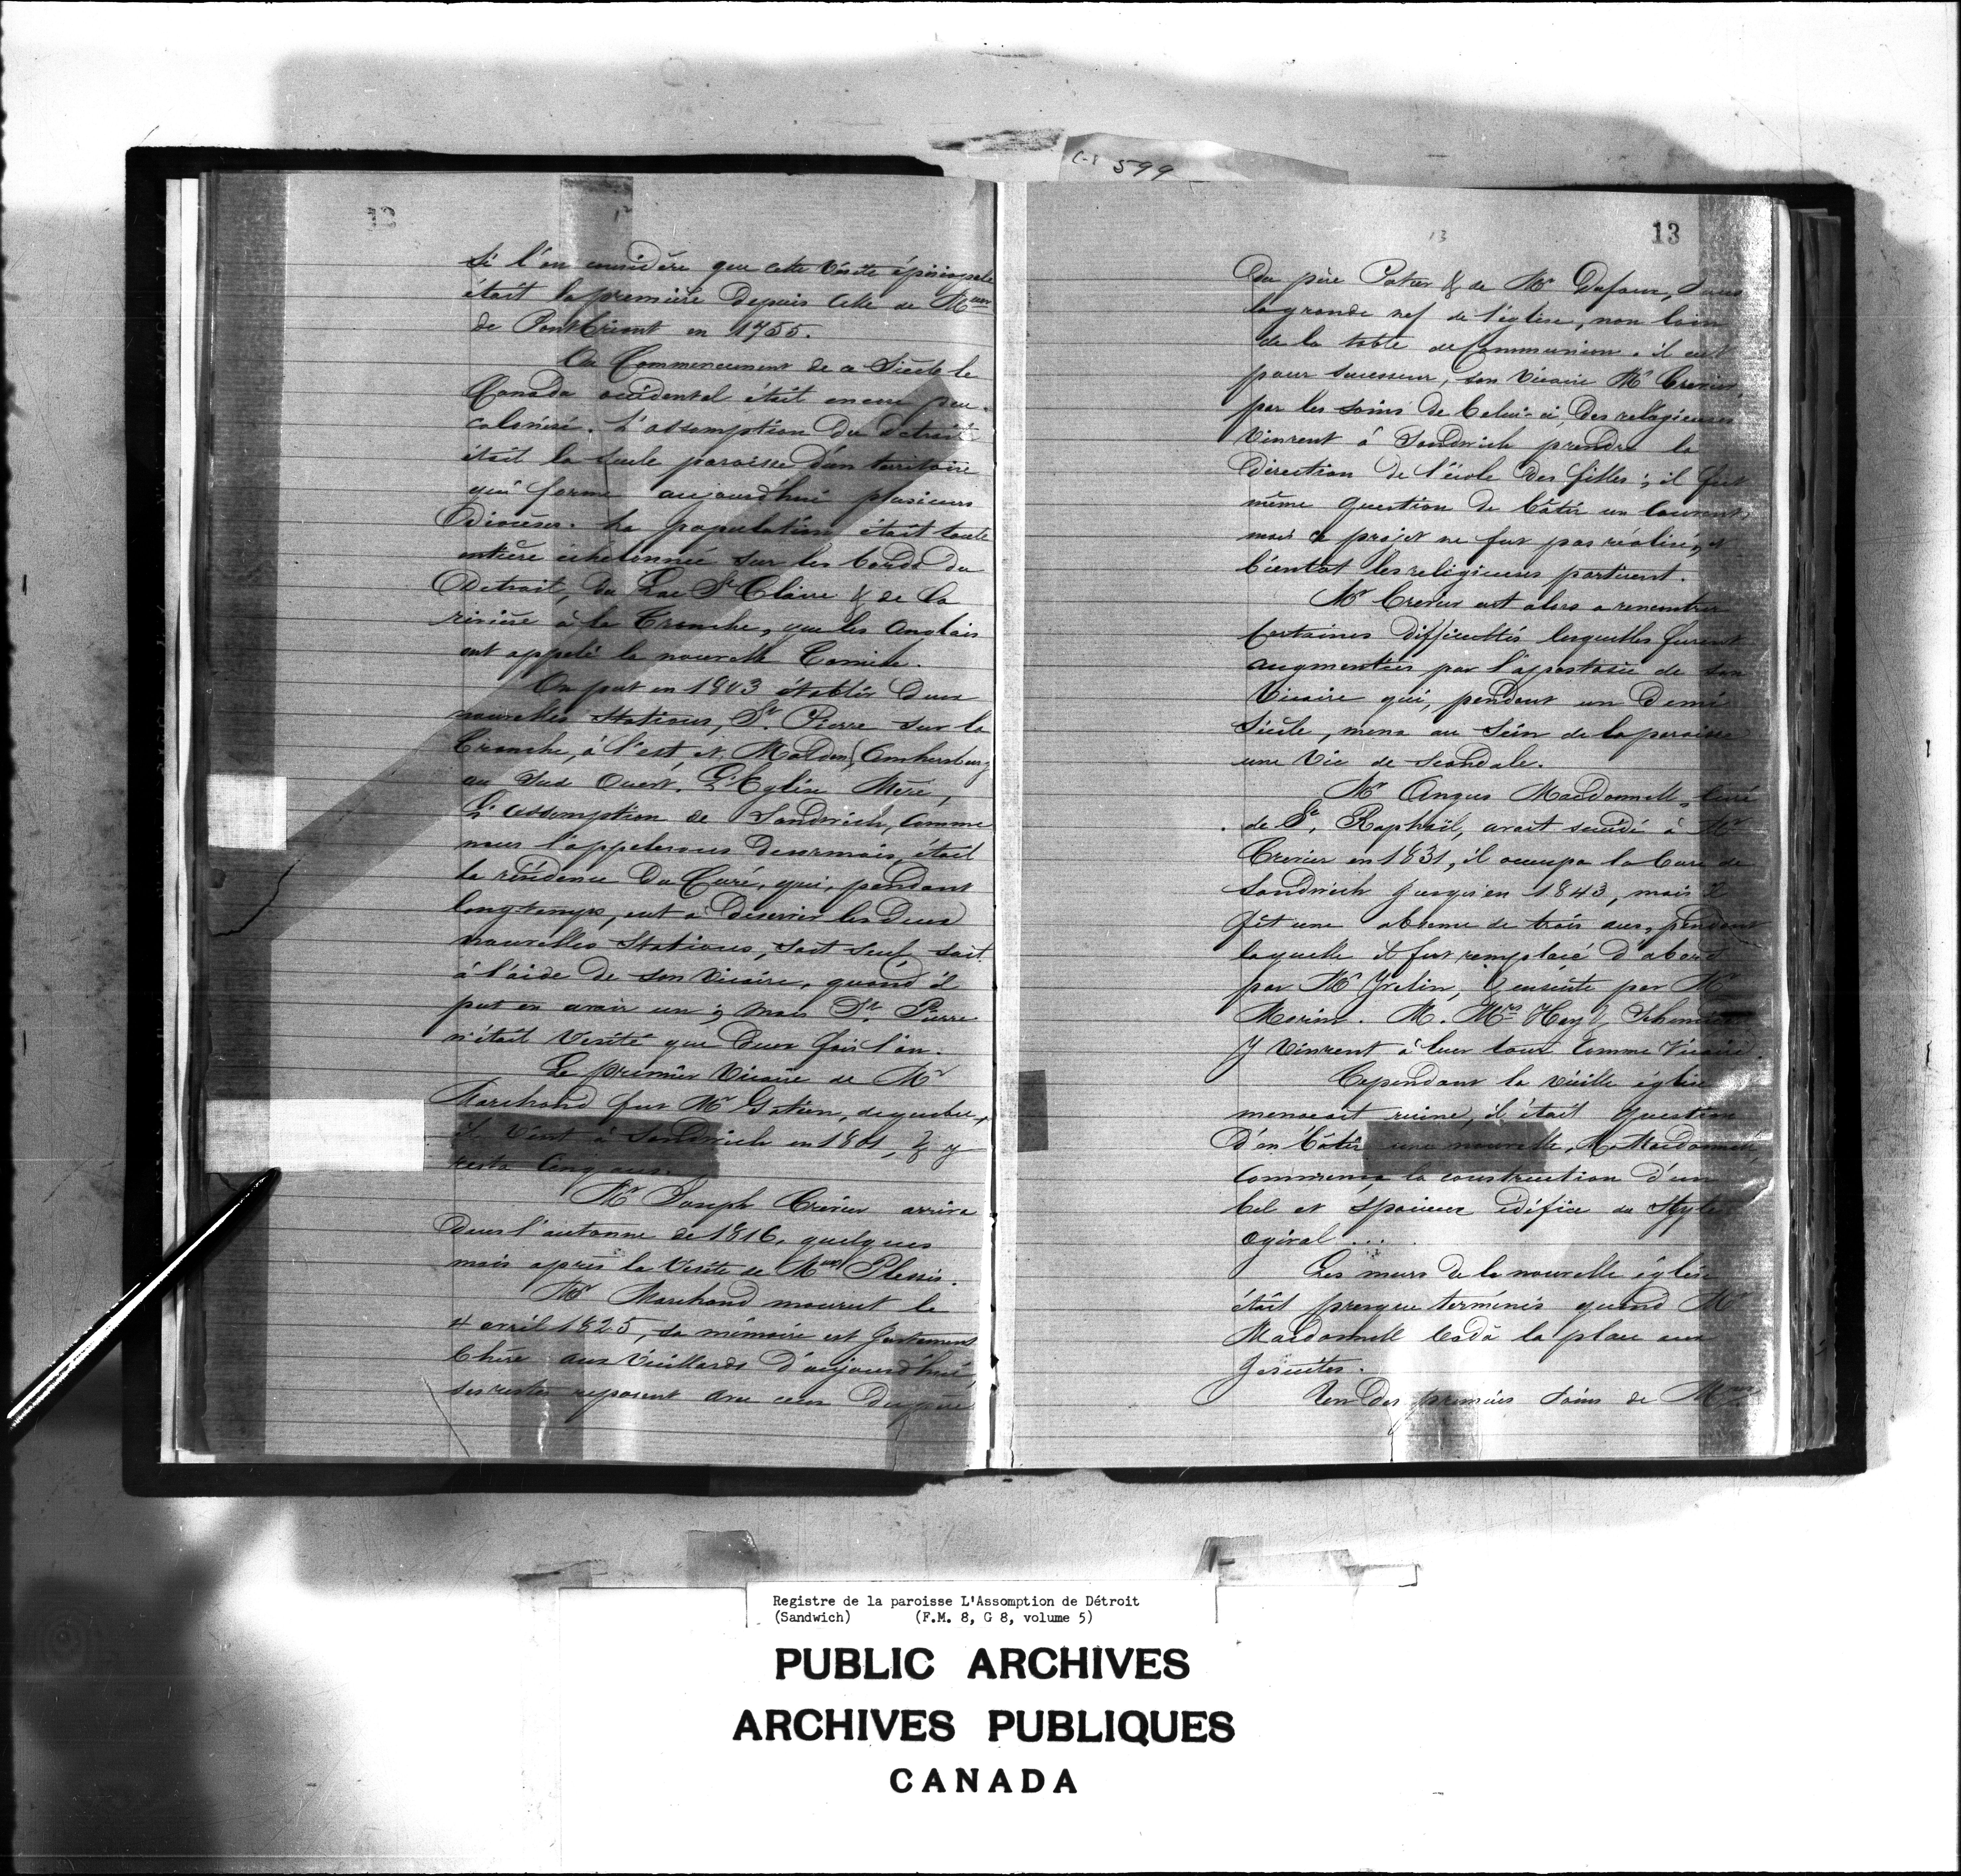 C-1 599
12
Si l'on considère que cette Visite épiscopale
était la première depuis celle de Mgr
de Pontbriant en 1755.
Au Commencement de ce Siècle le
Canada occidental était encore peu
colonisé. L'assomption du Detroit
était la seule paroisse d'un territoire
qui forme aujourd'hui plusieurs
Diocèses. La population était toute
entière échelonnée sur les bords du
Detroit, du Lac St Claire & de la
rivière à la Tranche, que les Anglais
ont appelé la nouvelle Tamise.
On put en 1803 établir deux
nouvelles Stations, St. Pierre sur la
Tranche, à l'est, et Malden (Amhersburg
au Sud Ouest. L'Eglise Mère,
L'assomption de Sandwich, comme
nous l'appelerons desormais, était
la résidence du Curé, qui, pendant
longtemps, eut à desservir les deux
nouvelles Stations, soit seul soit
à l'aide de son vicaire, quand il
put en avoir un ; mais St. Pierre
n'était Visité que deux fois l'an.
Le premier Vicaire de Mr
Marchand fut Mr Gatien, de quebec,
il vint à Sandwich en 1801, & y
resta Cinq ans.
Mr Joseph Crevier arriva
dans l'automne de 1816, quelques
mois après la Visite de Mgr Plessis.
Mr Marchand mourut le
4 avril 1825, sa mémoire est justement
Chère aux Vieillards d'aujourd'hui,
ses restes reposent avec ceux du père
13
13
Du père Potier & de Mr Dufaux, dans
la grande nef de l'église, non loin
de la table de Communion. il eut
pour successeur, son Vicaire Mr Crevier,
par les soins de Celui-ci, des religieuses
Vinrent à Sandwich prendre la
direction de l'école des filles ; il fut
même question de bâtir un Couvent,
mais ce projet ne fut pas réalisé, et
bientot les religieuses partirent.
Mr Crevier eut alors a rencontrer
Certaines difficultés lesquelles furent
augmentées par l'apostasie de son
Vicaire qui, pendant un demi
Siècle, mena au sein de la paroisse
une Vie de Scandale.
Mr Angus Macdonnell, Curé
de St. Raphaël, avait succédé à Mr
Crevier en 1831, il occupa la Cure de
Sandwich jusqu'en 1843, mais il
fit une absence de trois ans, pendant
laquelle il fut remplacé d'abord
par Mr Yvelin, & ensuite par Mr
Morin. M. Mrs Hay &
y Vinrent à leur tour comme Vicaire.
Cependant la vieille église
menacait ruine, il était question
d'en bâtir une nouvelle, Mr Macdonnell
Commença la construction d'un
bel et spacieux édifice du Style
Ogival ...
Les murs de la nouvelle église
était presque terminés quand Mr
Macdonnell Céda la place aux
Jesuites.
L'un des premiers soins de Mgr
Registre de la paroisse L'Assomption de Détroit
(Sandwich) (F.M. 8, G 8, volume 5)
PUBLIC ARCHIVES
ARCHIVES PUBLIQUES
CANADA